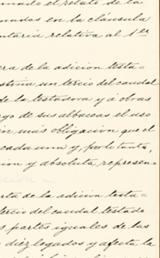 mado el relato de la
nados en la cláusula
entaria relativa al 1er
era de la adición testa-
un tercio del caudal
de la testadora y á obras
rgo de sus albaceas el uso
más obligación que el
cada uno y, por tanto,
ción y absoluta represen-
rta de la adición testa-
tercio del caudal testado
partes iguales de los
diez legados y afecta la